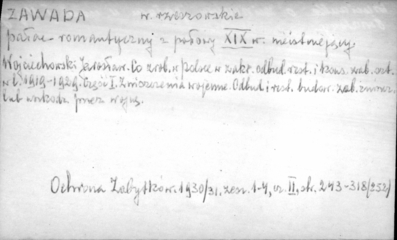 ZAWADA w. rzeszowskie
pałac romantyczny z połowy XIX w. nieistniejący.
Wojciechowski Jarosław. Co zrob. w Polsce w zakr. odbud. rest. i kons. zab. szt.
w l. 1919-1929. Część I. Zniszczenia wojenne. Odbud. i rest. budow. zab. zniszcz.
lub uszkodz. przez wojnę.
Ochrona Zabytków. 1930/31, zesz. 1-4, cz. II, str. 243-318 (252)